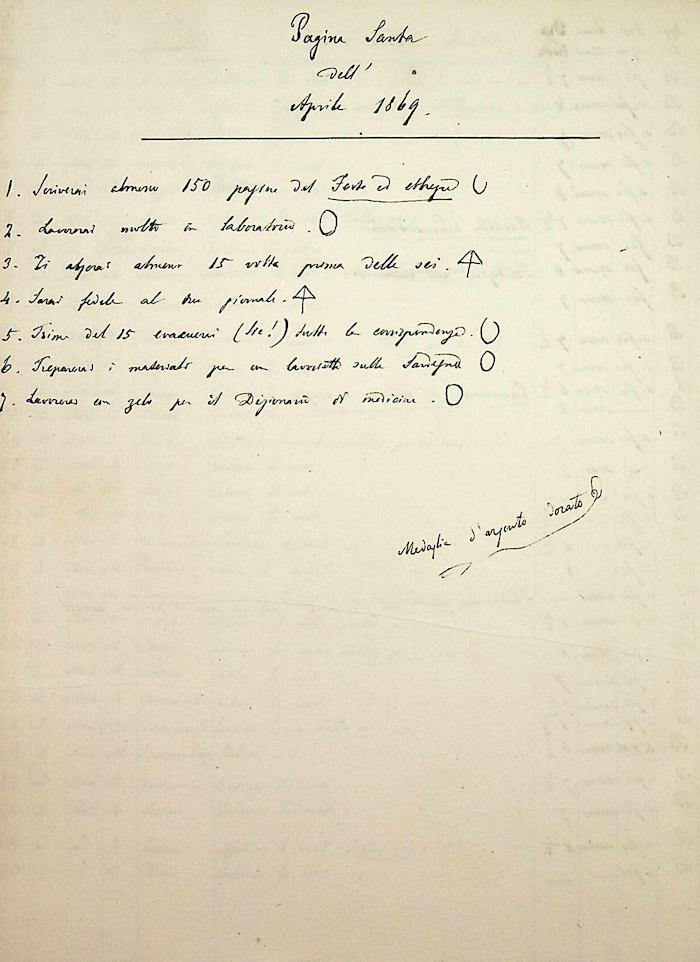 Pagina Santa
dell'
Aprile 1869.
1. Scriverai almeno 150 pagine del Feste ed ebbrezze
2. Lavorerai molto in laboratorio.
3. Ti alzerai almeno 15 volte prima delle sei.
4. Sarai fedele al tuo giornale.
5. Prima del 15 evacuerai (sic!) tutta la corrispondenza.
6. Preparerai i materiali per un lavoretto sulla Sardegna
7. Lavorerai con zelo per il Dizionario di medicina.
Medaglia d'argento dorato